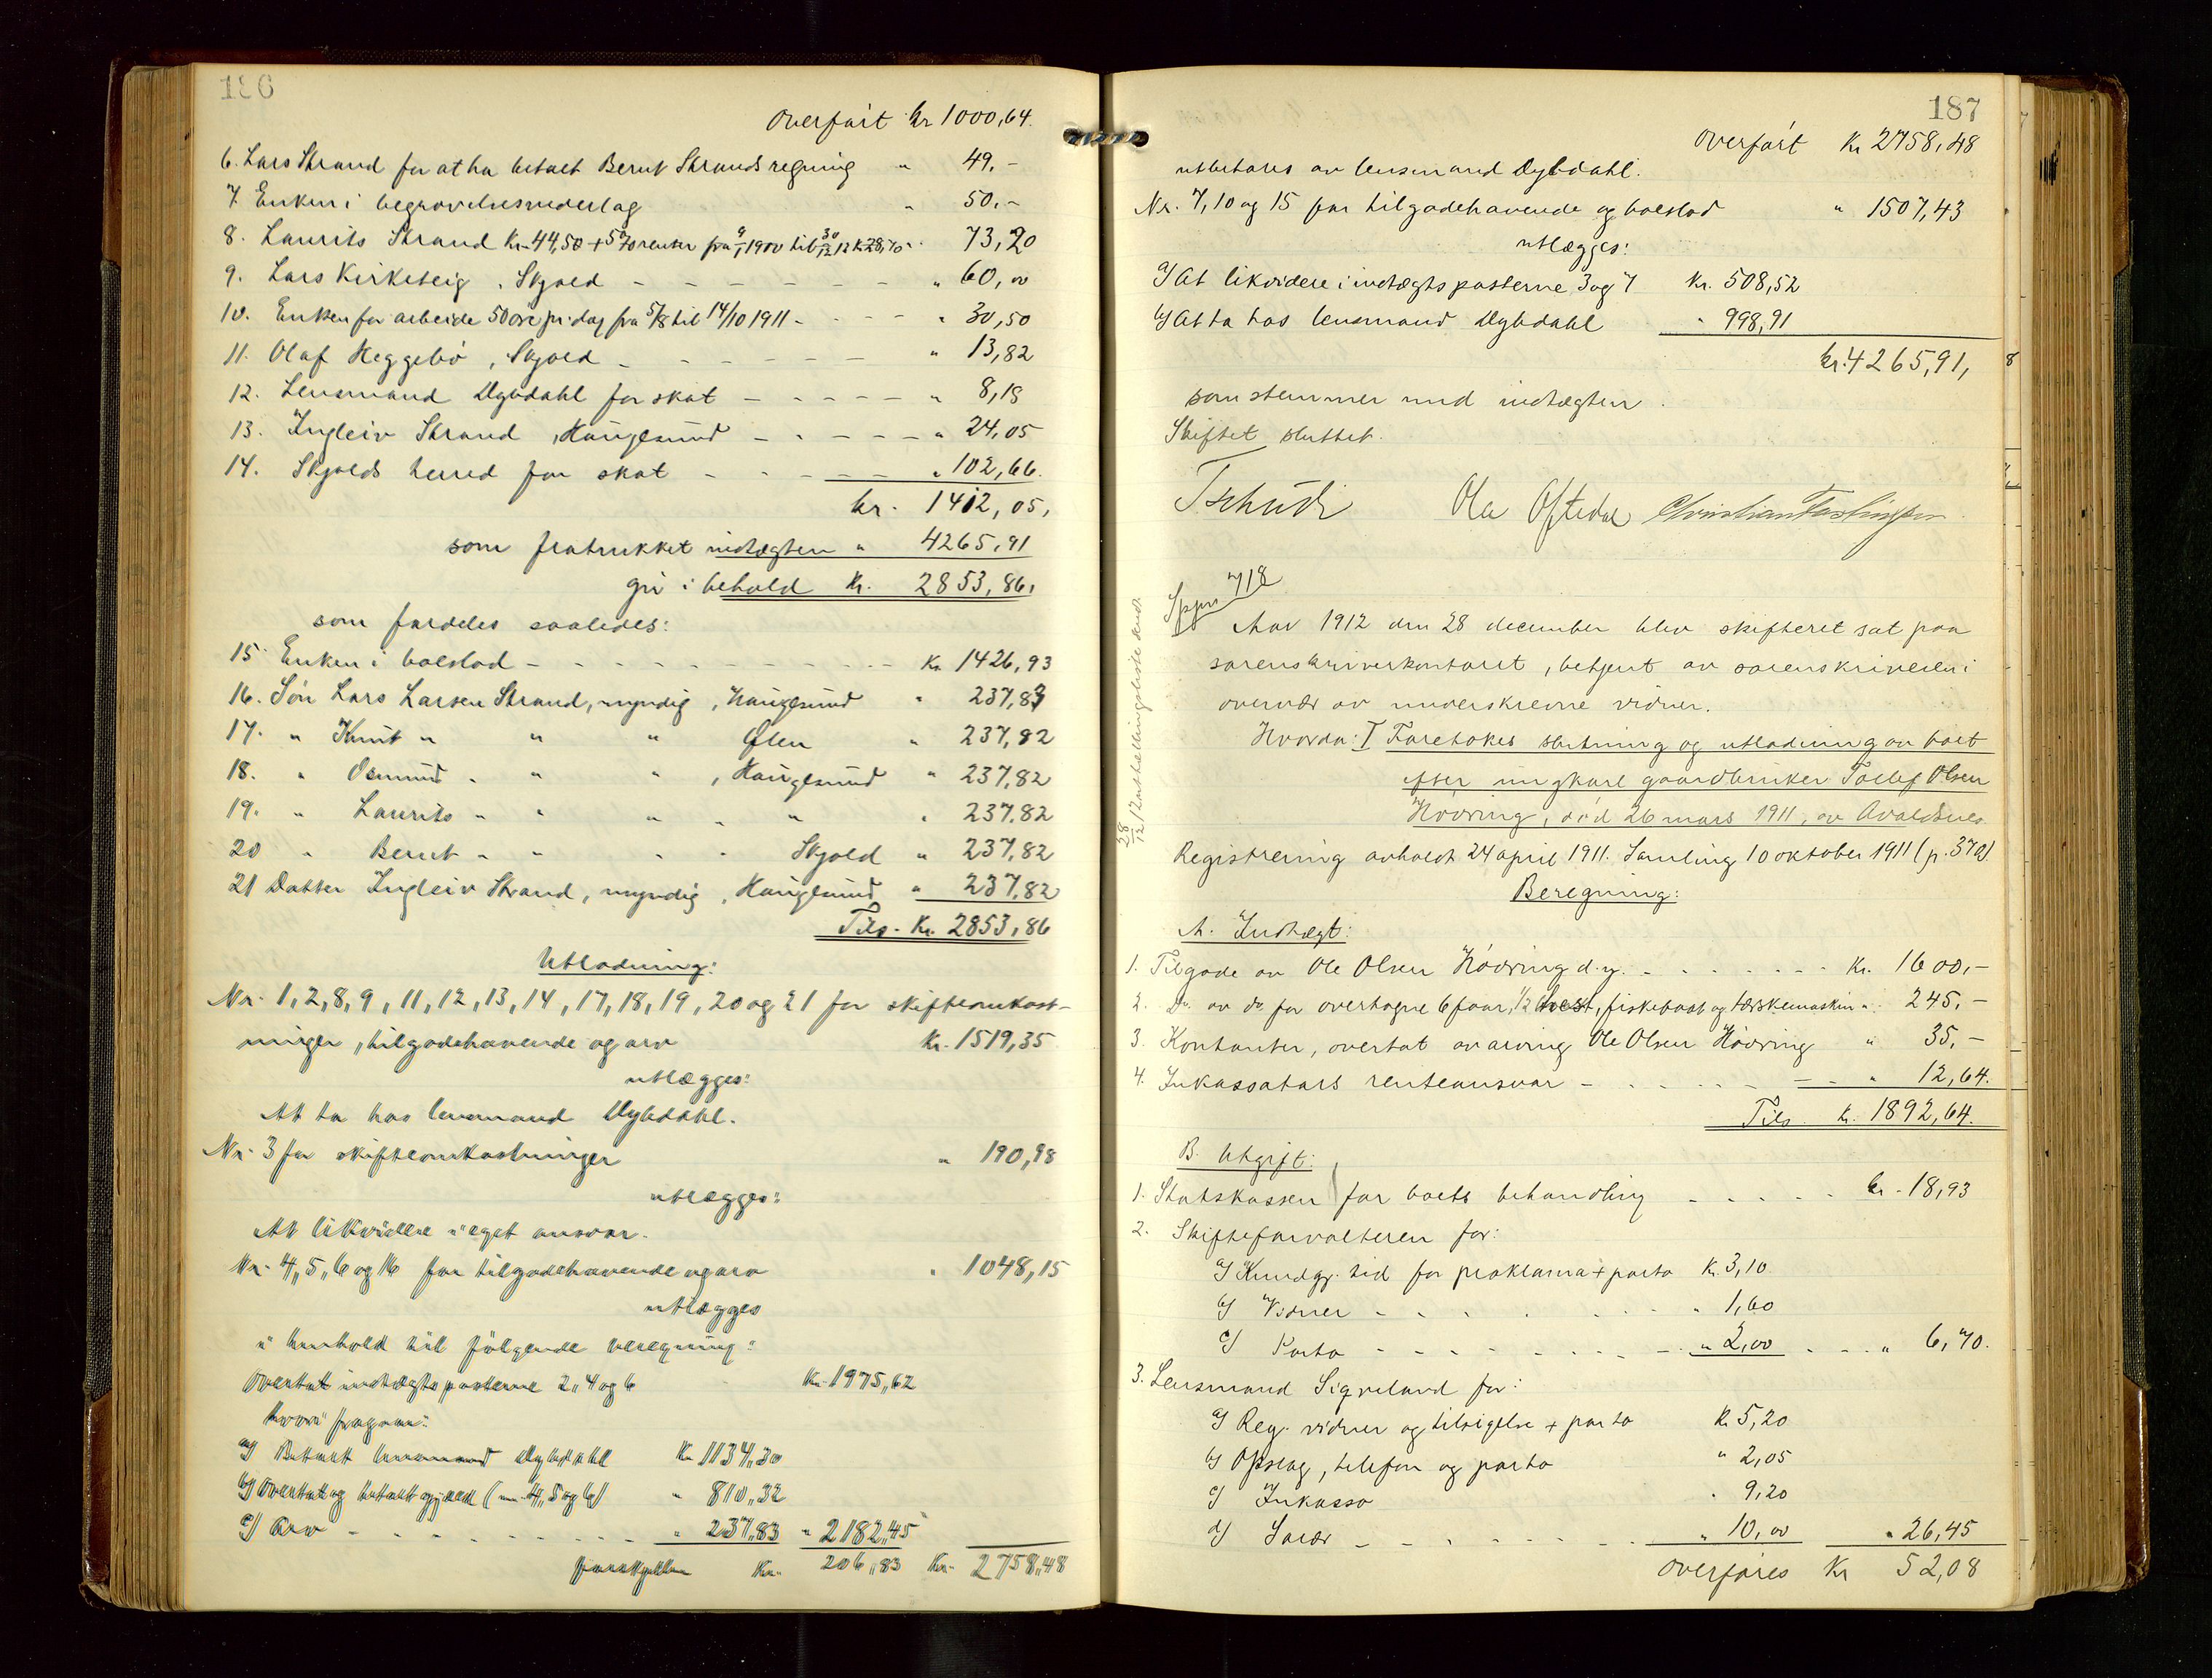 186
Overført kr 1000,64.
6. Lars Strand for at ha betalt Bernt Strands regning " 49.-
7. Enken i begravelsesvederlag " 50.-
8. Laurits Strand Kr 44,50 + 5% renter fra 9/1 1900 til 30/12 12 kr 28,70 " 73,20
9. Lars Kirketeig, Skjold - - - - - " 60,00
10. Enken for arbeide 50 øre pr. dag fra 5/8 til 14/10 1911 - - - " 30,50
11. Olaf Heggebø, Skjold - - - - - " 13,82
12. Lensmand Dybdahl for skat - - - - - " 8,19
13. Ingleiv Strand, Haugesund - - - - " 24,05
14. Skjolds herred for skat - - - - " 102,66.
kr. 1412,05,
som fratrukket indtægten " 4265,91
gir i behold Kr. 2853,86,
som fordeles saaledes:
15. Enken i boeslod - - - - - - - Kr 1426,93
16. Søn Lars Larsen Strand, myndig, Haugesund " 237,83
17. " Knut " " " Ølen " 237,82
18. " Osmund " " " , Haugesund " 237,82
19. " Laurits " " " " " " 237,82
20 " Bernt " " " " Skjold " 237,82
21 Datter Ingleiv Strand, myndig, Haugesund " 237,82
Tils. Kr. 2853,86
Utlodning:
Nr. 1, 2, 8, 9, 11, 12, 13, 14, 17, 18, 19, 20 og 21 for skifteomkost-
ninger, tilgodehavende og arv Kr. 1519,35
utlægges:
At ta hos lensmand Dybdahl.
Nr. 3 for skifteomkostninger " 190,98
utlægges:
At likvidere i eget ansvar.
Nr. 4, 5, 6 og 16 for tilgodehavende og arv " 1048,15
utlægges
i henhold til følgende beregning:
Overtat indtægtsposterne 2, 4 og 6 Kr. 1975,62
hvori fragaar:
a) Betalt lensmand Dybdahl Kr. 1134,30
b) Overtat og betalt gjæld (nr. 4, 5 og 6) " 810,32
c) Arv - - - - - - " 237,83 " 2182,45
forskjellen Kr. 206,83 Kr. 2758,48
187
Overført Kr 2758,48
utbetales av lensmand Dybdahl.
Nr. 7, 10 og 15 for tilgodehavende og boeslod " 1507,43
utlægges:
a) At likvidere i indtægtsposterne 3 og 7 Kr. 508,52
b) At ta hos lensmand Dybdahl " 998,91
kr. 4265,91,
som stemmer med indtægten.
Skiftet sluttet.
Tschudi Ola Oftedal Christian Fastingsen
Sppr 718
28/12 12 utstellingsliste sendt
Aar 1912 den 28 december blev skifteret sat paa
sorenskriverkontoret, betjent av sorenskriveren i
overvær av underskrevne vidner.
Hvorda: I Foretokes slutning og utlodning av boet
efter ungkarl gaardbruker Tollef Olsen
Høvring, død 26 mars 1911, av Avaldsnes.
Registrering avholdt 24 april 1911. Samling 10 oktober 1911 (p. 37a).
Beregning:
A. Indtægt:
1. Tilgode av Ole Olsen Høvring d.y. - - - - - Kr. 1600,-
2. Do av do for overtagne 6 faar, 1/2 hest, fiskebaat og tærskemaskin " 245,-
3. Kontanter, overtat av arving Ole Olsen Høvring " 35,-
4. Inkassators renteansvar - - - - - " 12,64.
Tils. kr. 1892,64.
B. Utgift:
1. Statskassen for boets behandling - - - - - kr. 18,93
2. Skifteforvalteren for:
a) Kundgj. tid for proklama + porto Kr. 3,10
b) Vidner - - - - - " 1,60
c) Porto - - - - - - " 2,00 - - " 6,70.
3. Lensmand Sigveland for:
a) Reg. vidner og tilsigelse + porto Kr 5,20
b) Opslag, telefon og porto " 2,05
c) Inkasso " 9,20
d) Salær - - - - - " 10,00 " 26,45
Overføres Kr 52,08